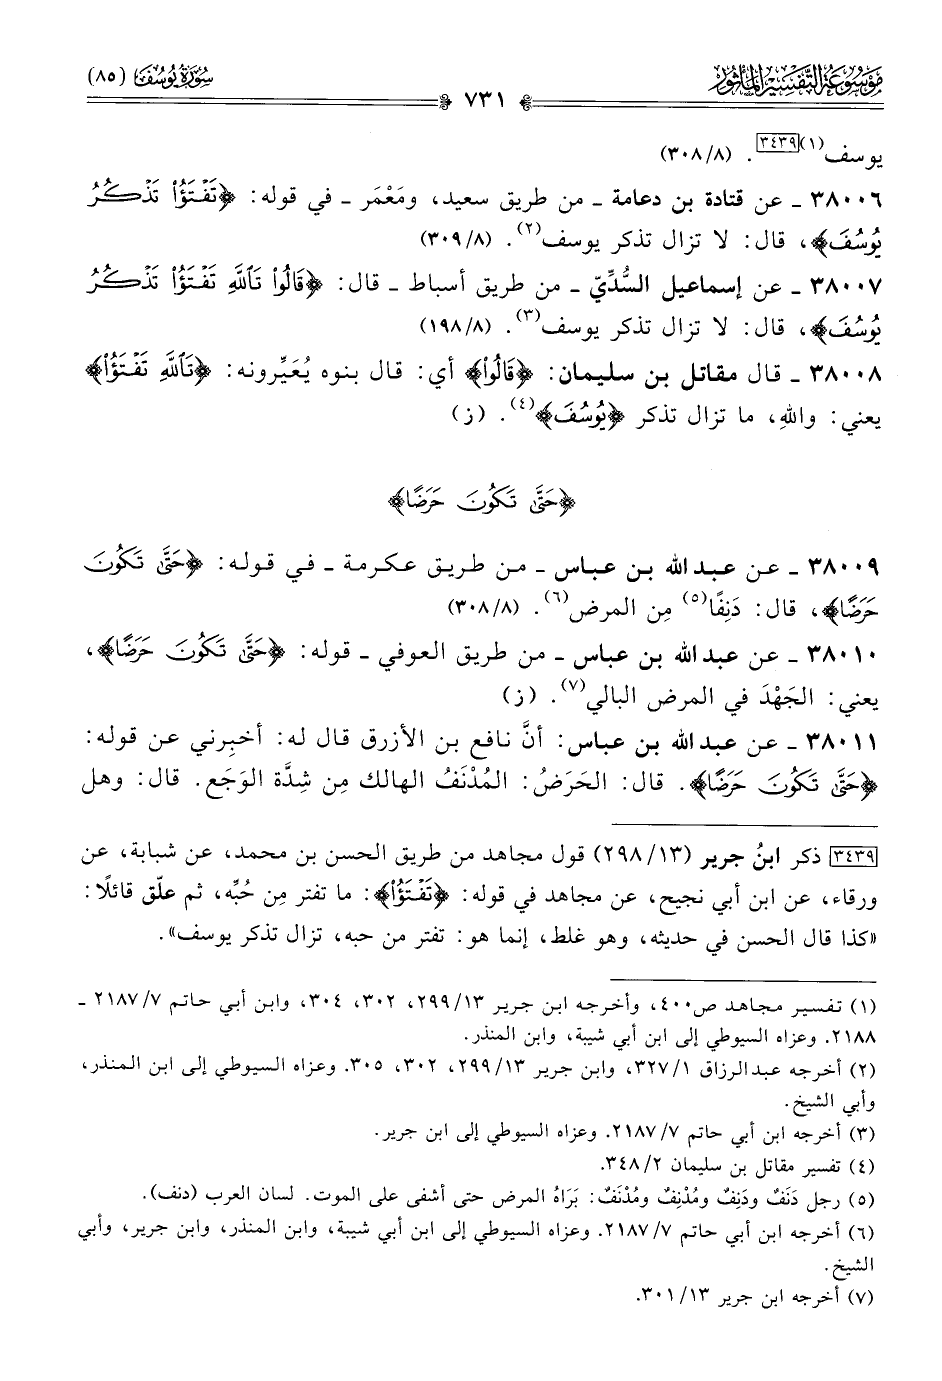 مَوْسُوعَةُ التَّفْسِيرِ المَأْثُورِ
سُورَةُ يُوسُفَ (٨٥)
٧٣١
يوسف(١)[٣٤٣٩]. (٣٠٨/٨)
٣٨٠٠٦ ـ عن قتادة بن دعامة ـ من طريق سعيد، ومَعْمَر ـ في قوله: ﴿تَفْتَؤُاْ تَذْكُرُ
يُوسُفَ﴾، قال: لا تزال تذكر يوسف(٢). (٣٠٩/٨)
٣٨٠٠٧ ـ عن إسماعيل السُّدِّيّ ـ من طريق أسباط ـ قال: ﴿قَالُواْ تَاللَّهِ تَفْتَؤُاْ تَذْكُرُ
يُوسُفَ﴾، قال: لا تزال تذكر يوسف(٣). (١٩٨/٨)
٣٨٠٠٨ ـ قال مقاتل بن سليمان: ﴿قَالُواْ﴾ أي: قال بنوه يُعَيِّرونه: ﴿تَاللَّهِ تَفْتَؤُاْ﴾
يعني: واللهِ، ما تزال تذكر ﴿يُوسُفَ﴾(٤). (ز)
﴿حَتَّى تَكُونَ حَرَضًا﴾
٣٨٠٠٩ ـ عن عبد الله بن عباس ـ من طريق عكرمة ـ في قوله: ﴿حَتَّى تَكُونَ
حَرَضًا﴾، قال: دَنِفًا(٥) مِن المرض(٦). (٣٠٨/٨)
٣٨٠١٠ ـ عن عبد الله بن عباس ـ من طريق العوفي ـ قوله: ﴿حَتَّى تَكُونَ حَرَضًا﴾،
يعني: الجَهْدَ في المرض البالي(٧). (ز)
٣٨٠١١ ـ عن عبد الله بن عباس: أنَّ نافع بن الأزرق قال له: أخبِرني عن قوله:
﴿حَتَّى تَكُونَ حَرَضًا﴾. قال: الحَرَضُ: المُدْنَفُ الهالك مِن شِدَّة الوَجَع. قال: وهل
[٣٤٣٩] ذكر ابنُ جرير (٢٩٨/١٣) قول مجاهد من طريق الحسن بن محمد، عن شبابة، عن
ورقاء، عن ابن أبي نجيح، عن مجاهد في قوله: ﴿تَفْتَؤُاْ﴾: ما تفتر مِن حُبِّه، ثم علّق قائلًا:
«كذا قال الحسن في حديثه، وهو غلط، إنما هو: تفتر من حبه، تزال تذكر يوسف».
(١) تفسير مجاهد ص٤٠٠، وأخرجه ابن جرير ٢٩٩/١٣، ٣٠٢، ٣٠٤، وابن أبي حاتم ٢١٨٧/٧ ـ
٢١٨٨. وعزاه السيوطي إلى ابن أبي شيبة، وابن المنذر.
(٢) أخرجه عبدالرزاق ٣٢٧/١، وابن جرير ٢٩٩/١٣، ٣٠٢، ٣٠٥. وعزاه السيوطي إلى ابن المنذر،
وأبي الشيخ.
(٣) أخرجه ابن أبي حاتم ٢١٨٧/٧. وعزاه السيوطي إلى ابن جرير.
(٤) تفسير مقاتل بن سليمان ٣٤٨/٢.
(٥) رجل دَنَفٌ ودَنِفٌ ومُدْنِفٌ ومُدْنَفٌ: بَرَاهُ المرض حتى أشفى على الموت. لسان العرب (دنف).
(٦) أخرجه ابن أبي حاتم ٢١٨٧/٧. وعزاه السيوطي إلى ابن أبي شيبة، وابن المنذر، وابن جرير، وأبي
الشيخ.
(٧) أخرجه ابن جرير ٣٠١/١٣.